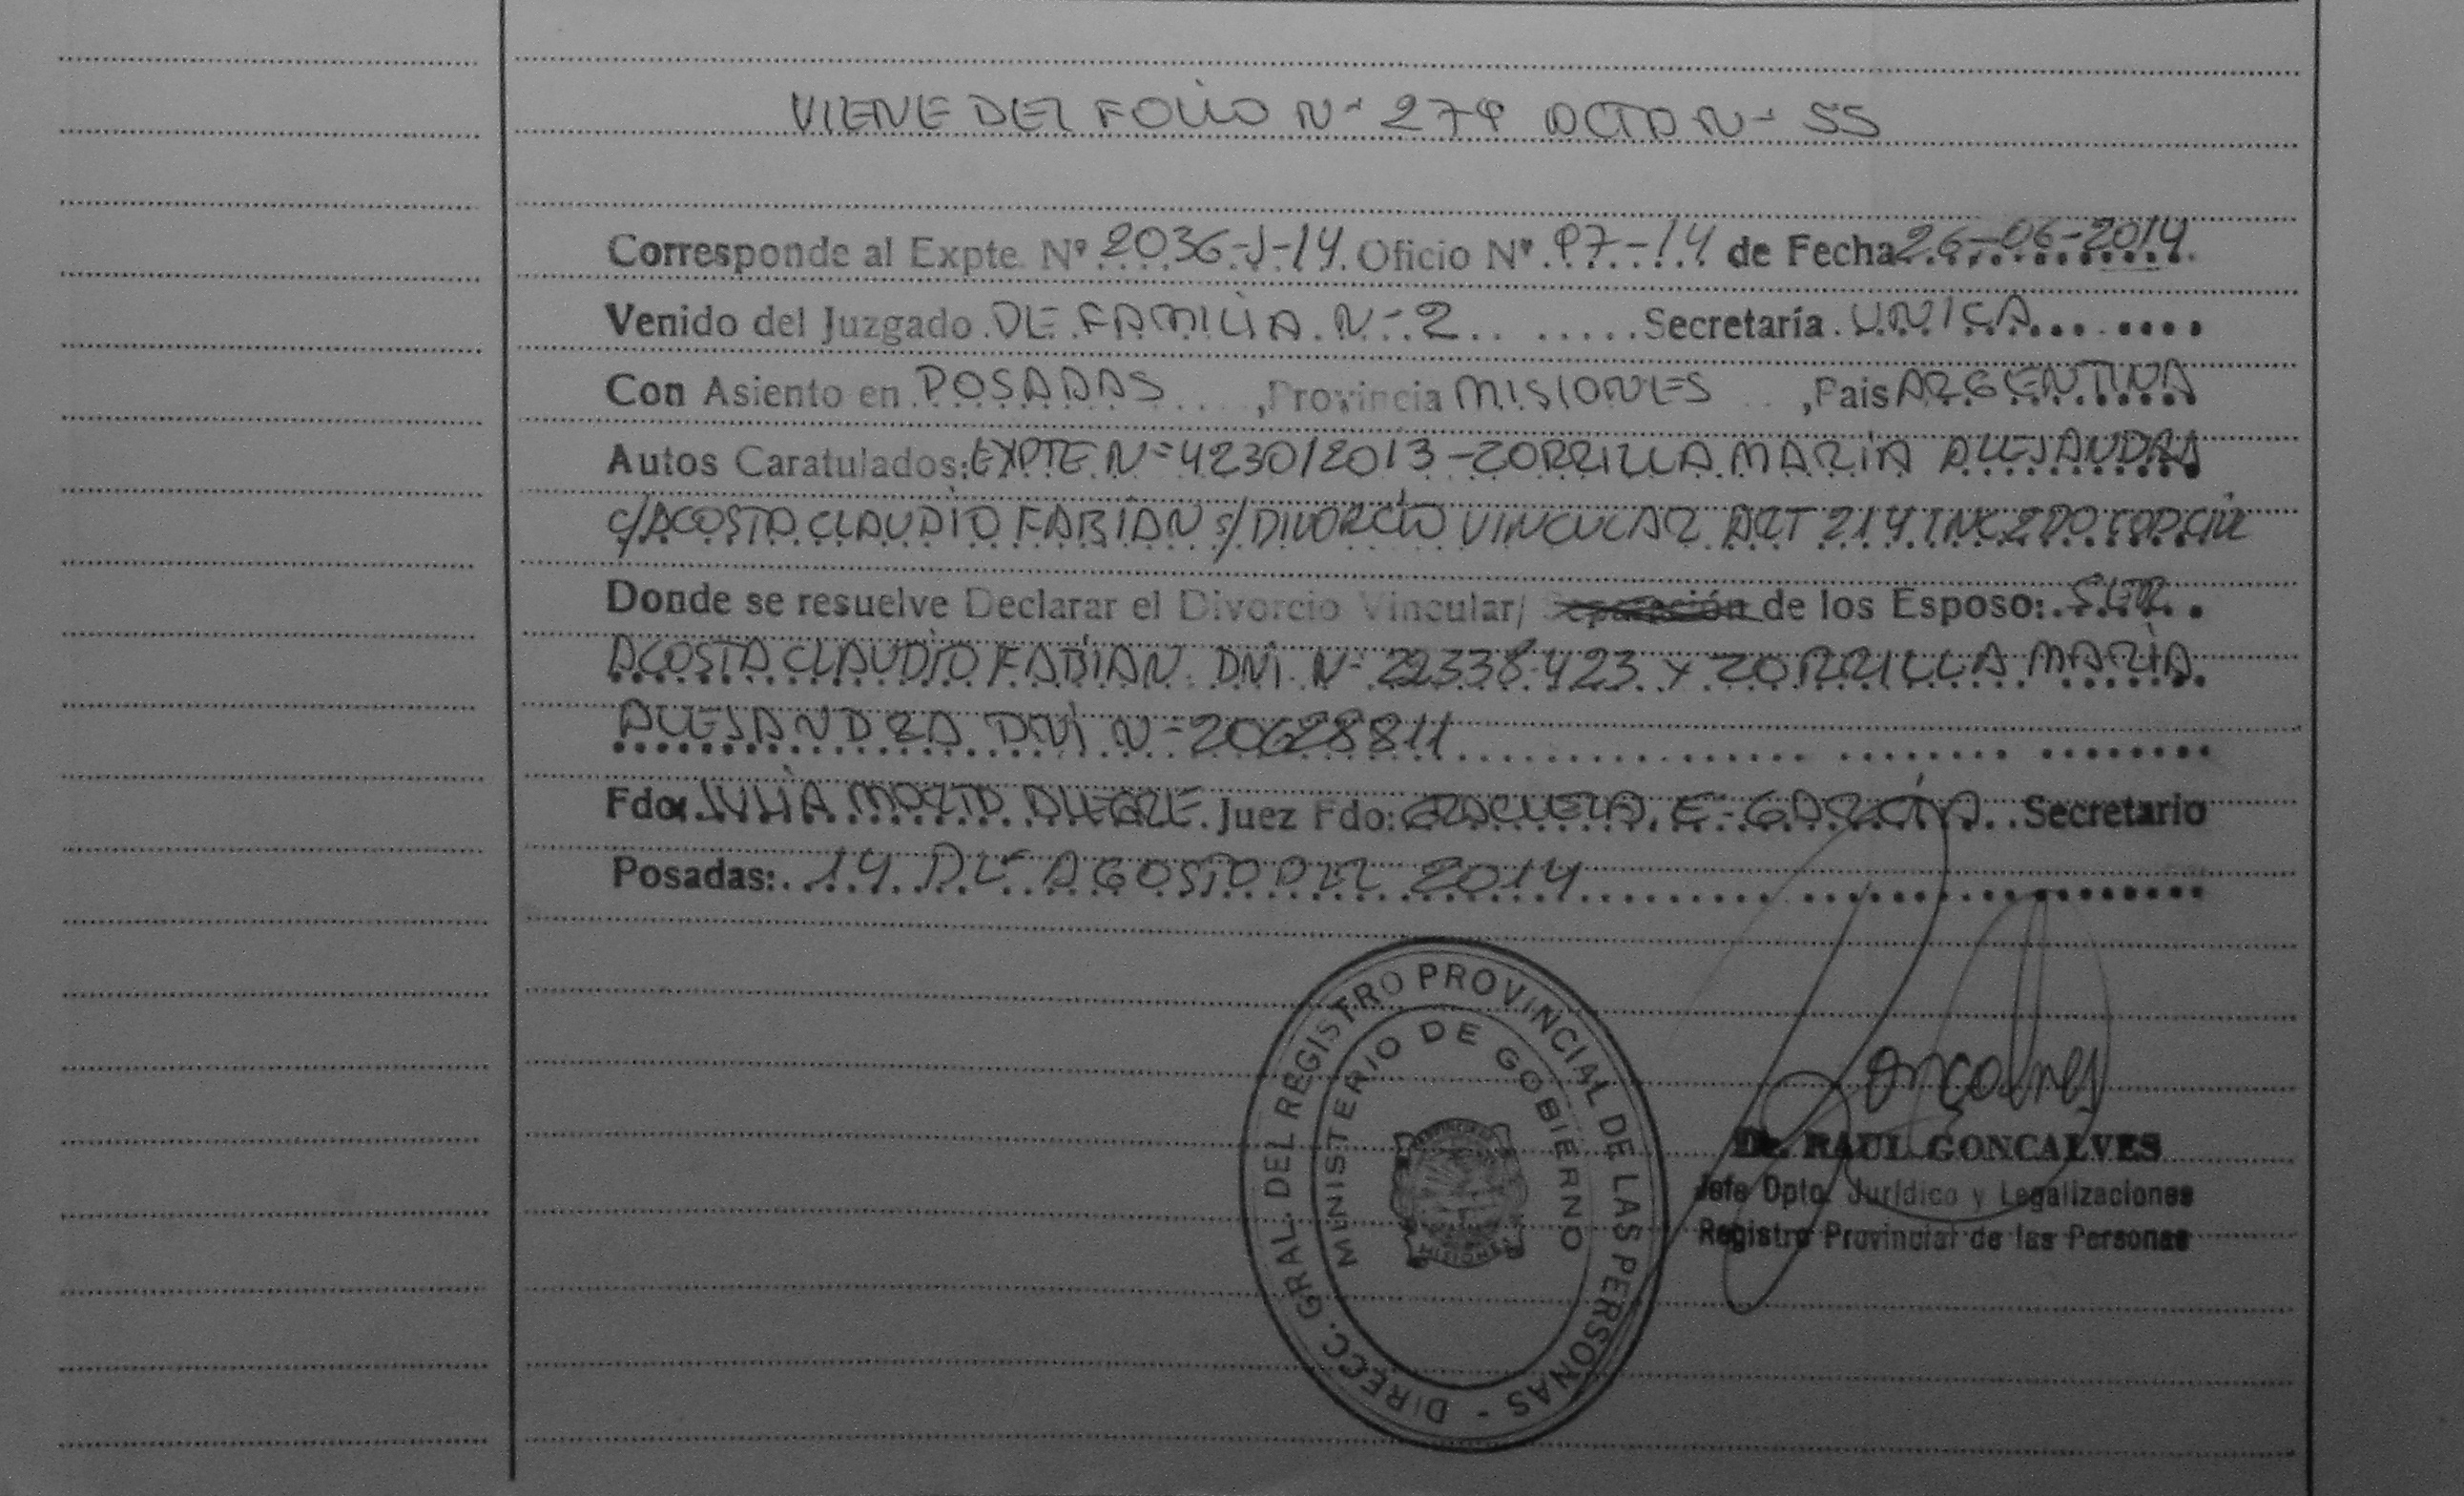 VIENE DEL FOLIO Nº 279 ACTA Nº 55
Corresponde al Expte. Nº 2036-J-14. Oficio Nº 97-14 de Fecha 26-06-2014.
Venido del Juzgado DE FAMILIA Nº 2 Secretaría UNICA
Con Asiento en POSADAS, Provincia MISIONES, Pais ARGENTINA
Autos Caratulados: EXPTE Nº 4230/2013 - ZORRILLA MARIA ALEJANDRA
c/ ACOSTA CLAUDIO FABIAN s/ DIVORCIO VINCULAR ART 214 INC 2DO COD CIVIL
Donde se resuelve Declarar el Divorcio Vincular/ Separación de los Esposo:
ACOSTA CLAUDIO FABIAN DNI Nº 22338423 y ZORRILLA MARIA
ALEJANDRA DNI Nº 20628811
Fdo: JULIA ALEGRE. Juez Fdo: GRACIELA E. GARCÍA. Secretario
Posadas: 14 DE AGOSTO DEL 2014
DIRECC. GRAL. DEL REGISTRO PROVINCIAL DE LAS PERSONAS -
MINISTERIO DE GOBIERNO
MISIONES
Goncalves
Dr. RAUL GONCALVES
Jefe Dpto. Jurídico y Legalizaciones
Registro Provincial de las Personas